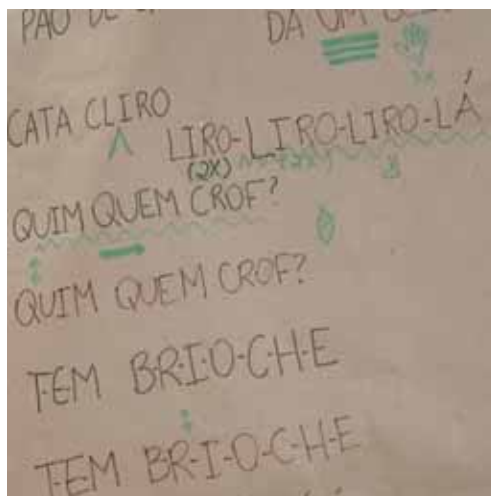 PAO DE
DÁ UM
CATA CLIRO
LIRO-LIRO-LIRO-LÁ
(2X) (2X)
QUIM QUEM CROF?
QUIM QUEM CROF?
TEM BR-I-O-C-H-E
TEM BR-I-O-C-H-E